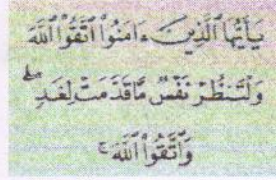 يَٰٓأَيُّهَا ٱلَّذِينَ ءَامَنُوا۟ ٱتَّقُوا۟ ٱللَّهَ
وَلْتَنظُرْ نَفْسٌ مَّا قَدَّمَتْ لِغَدٍ ۖ
وَٱتَّقُوا۟ ٱللَّهَ ۚ